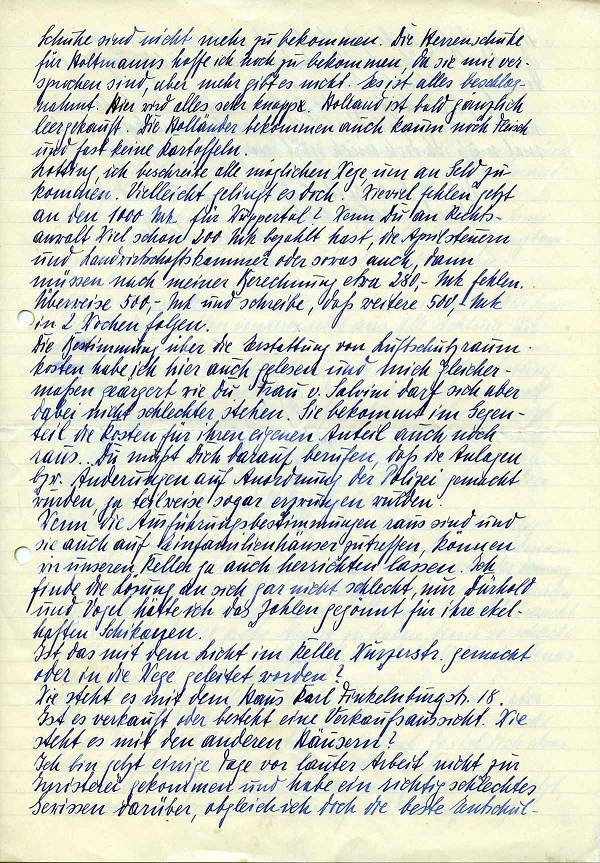 Schuhe sind nicht mehr zu bekommen. Die Herrenschuhe
für Holtmanns hoffe ich noch zu bekommen, da sie mir ver-
sprochen sind, aber mehr gibt es nicht. Es ist alles beschlag-
nahmt. Hier wird alles sehr knapp. Holland ist bald gänzlich
leergekauft. Die Holländer bekommen auch kaum noch Fleisch
und fast keine Kartoffeln.
Lotting, ich beschreite alle möglichen Wege um an Geld zu
kommen. Vielleicht gelingt es doch. Wieviel fehlen jetzt
an den 1000 Mk. für Wuppertal? Wenn Du an Rechts-
anwalt Viel schon 200 Mk bezahlt hast, die Aprilsteuern
und Landwirtschaftskammer oder sowas auch, dann
müssen nach meiner Berechnung etwa 280,- Mk fehlen.
Überweise 500,- Mk und schreibe, daß weitere 500,- Mk
in 2 Wochen folgen.
Die Bestimmung über die Erstattung von Luftschutzraum-
kosten habe ich hier auch gelesen und mich gleicher-
maßen geärgert wie Du. Frau v. Salvini darf sich aber
dabei nicht schlechter stehen. Sie bekommt im Gegen-
teil die Kosten für ihren eigenen Anteil auch noch
raus. Du mußt Dich darauf berufen, daß die Anlagen
bzw. Änderungen auf Anordnung der Polizei gemacht
wurden, ja teilweise sogar erzwungen wurden.
Wenn die Ausführungsbestimmungen raus sind und
sie auch auf Einfamilienhäuser zutreffen, können
wir unseren Keller ja auch herrichten lassen. Ich
finde die Lösung an sich gar nicht schlecht, nur Dürhold
und Vogel hätte ich das Zahlen gegönnt für ihre ekel-
haften Schikanen.
Ist das mit dem Licht im Keller Wurzerstr. gemacht
oder in die Wege geleitet worden?
Wie steht es mit dem Haus Karl Finkelnburgstr. 18.
Ist es verkauft oder besteht eine Verkaufsaussicht. Wie
steht es mit den anderen Häusern?
Ich bin jetzt einige Tage vor lauter Arbeit nicht zur
Juristerei gekommen und habe ein richtig schlechtes
Gewissen darüber, obgleich ich doch die beste Entschul-